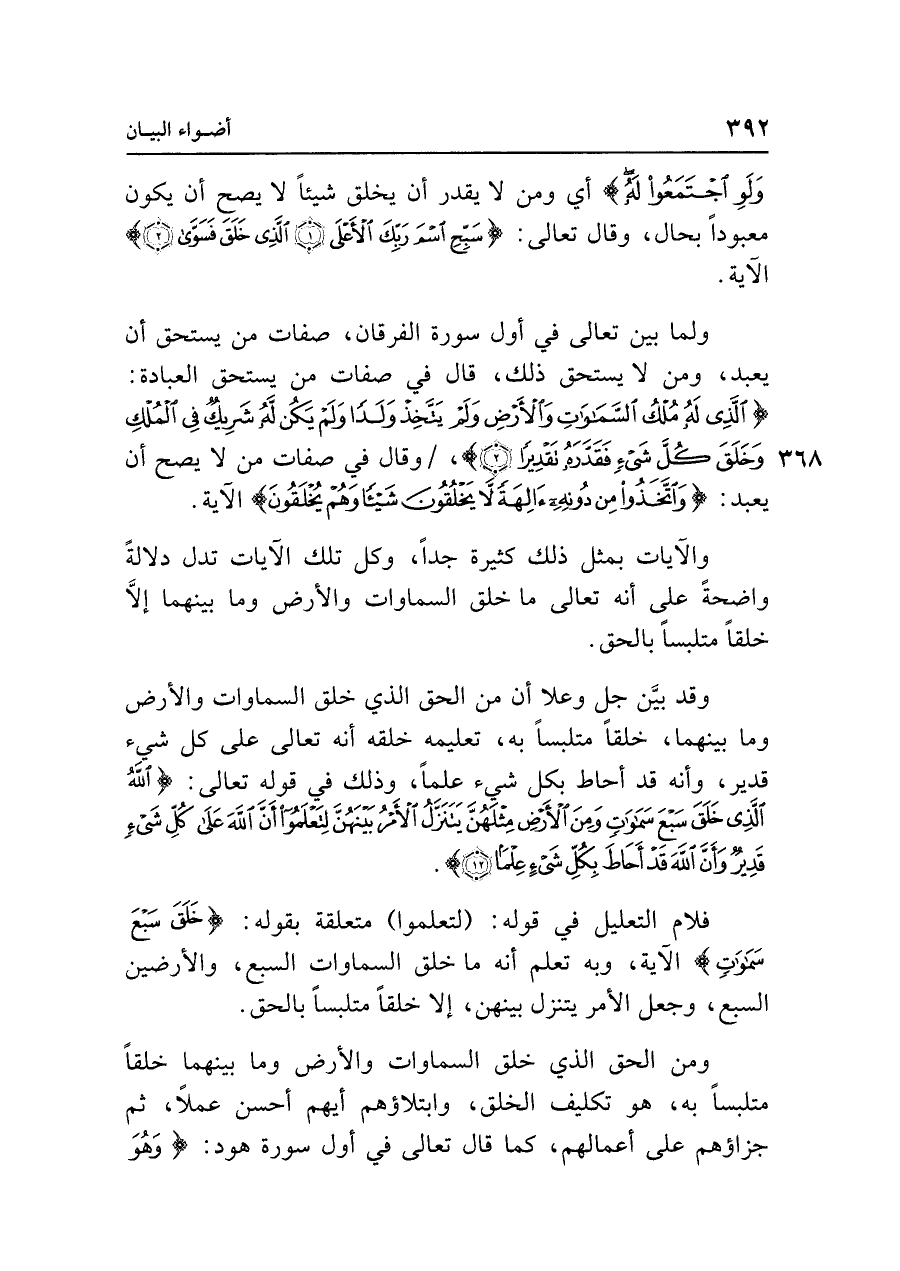 ٣٩٢ أضواء البيان
وَلَوِ ٱجْتَمَعُوا۟ لَهُۥۖ﴾ أي ومن لا يقدر أن يخلق شيئاً لا يصح أن يكون
معبوداً بحال، وقال تعالى: ﴿سَبِّحِ ٱسْمَ رَبِّكَ ٱلْأَعْلَى ١ ٱلَّذِى خَلَقَ فَسَوَّىٰ ٢﴾
الآية.
ولما بين تعالى في أول سورة الفرقان، صفات من يستحق أن
يعبد، ومن لا يستحق ذلك، قال في صفات من يستحق العبادة:
﴿ٱلَّذِى لَهُۥ مُلْكُ ٱلسَّمَٰوَٰتِ وَٱلْأَرْضِ وَلَمْ يَتَّخِذْ وَلَدًا وَلَمْ يَكُن لَّهُۥ شَرِيكٌ فِى ٱلْمُلْكِ
٣٦٨ وَخَلَقَ كُلَّ شَىْءٍ فَقَدَّرَهُۥ تَقْدِيرًا ٢﴾، / وقال في صفات من لا يصح أن
يعبد: ﴿وَٱتَّخَذُوا۟ مِن دُونِهِۦٓ ءَالِهَةً لَّا يَخْلُقُونَ شَيْـًٔا وَهُمْ يُخْلَقُونَ﴾ الآية.
والآيات بمثل ذلك كثيرة جداً، وكل تلك الآيات تدل دلالةً
واضحةً على أنه تعالى ما خلق السماوات والأرض وما بينهما إلاَّ
خلقاً متلبساً بالحق.
وقد بيَّن جل وعلا أن من الحق الذي خلق السماوات والأرض
وما بينهما، خلقاً متلبساً به، تعليمه خلقه أنه تعالى على كل شيء
قدير، وأنه قد أحاط بكل شيء علماً، وذلك في قوله تعالى: ﴿ٱللَّهُ
ٱلَّذِى خَلَقَ سَبْعَ سَمَٰوَٰتٍ وَمِنَ ٱلْأَرْضِ مِثْلَهُنَّ يَتَنَزَّلُ ٱلْأَمْرُ بَيْنَهُنَّ لِتَعْلَمُوٓا۟ أَنَّ ٱللَّهَ عَلَىٰ كُلِّ شَىْءٍ
قَدِيرٌ وَأَنَّ ٱللَّهَ قَدْ أَحَاطَ بِكُلِّ شَىْءٍ عِلْمًۢا ١٢﴾.
فلام التعليل في قوله: (لتعلموا) متعلقة بقوله: ﴿خَلَقَ سَبْعَ
سَمَٰوَٰتٍ﴾ الآية، وبه تعلم أنه ما خلق السماوات السبع، والأرضين
السبع، وجعل الأمر يتنزل بينهن، إلا خلقاً متلبساً بالحق.
ومن الحق الذي خلق السماوات والأرض وما بينهما خلقاً
متلبساً به، هو تكليف الخلق، وابتلاؤهم أيهم أحسن عملاً، ثم
جزاؤهم على أعمالهم، كما قال تعالى في أول سورة هود: ﴿وَهُوَ